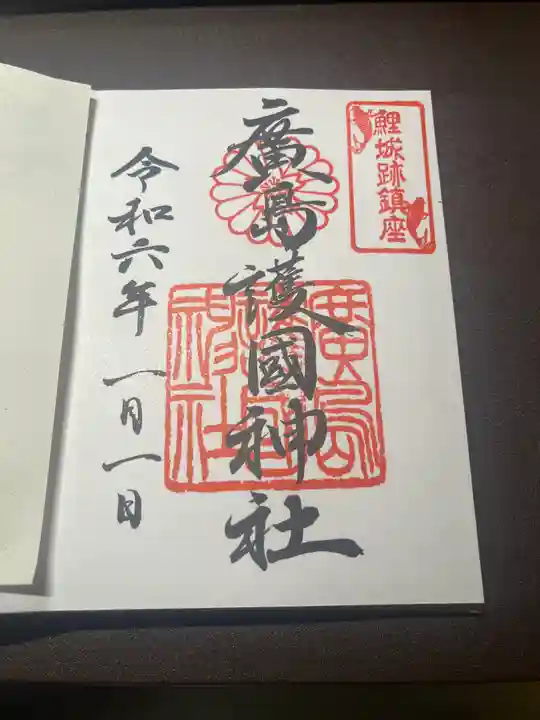 鯉城跡鎮座
廣島護國神社
廣島護國神社
令和六年 一月一日